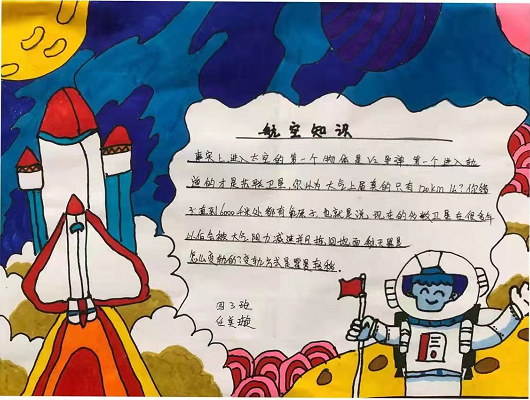 航空知识
事实上进入太空的第一个物体是V2导弹第一个进入轨
道的才是苏联卫星,你以为大气上层真的只有120km么?你错
了直到6000千米外都有氧原子,也就是说,现在的多数卫星在很多年
以后会被大气阻力减速并且拖回地面
怎么变轨的?变轨方式是
四3班
任美璇